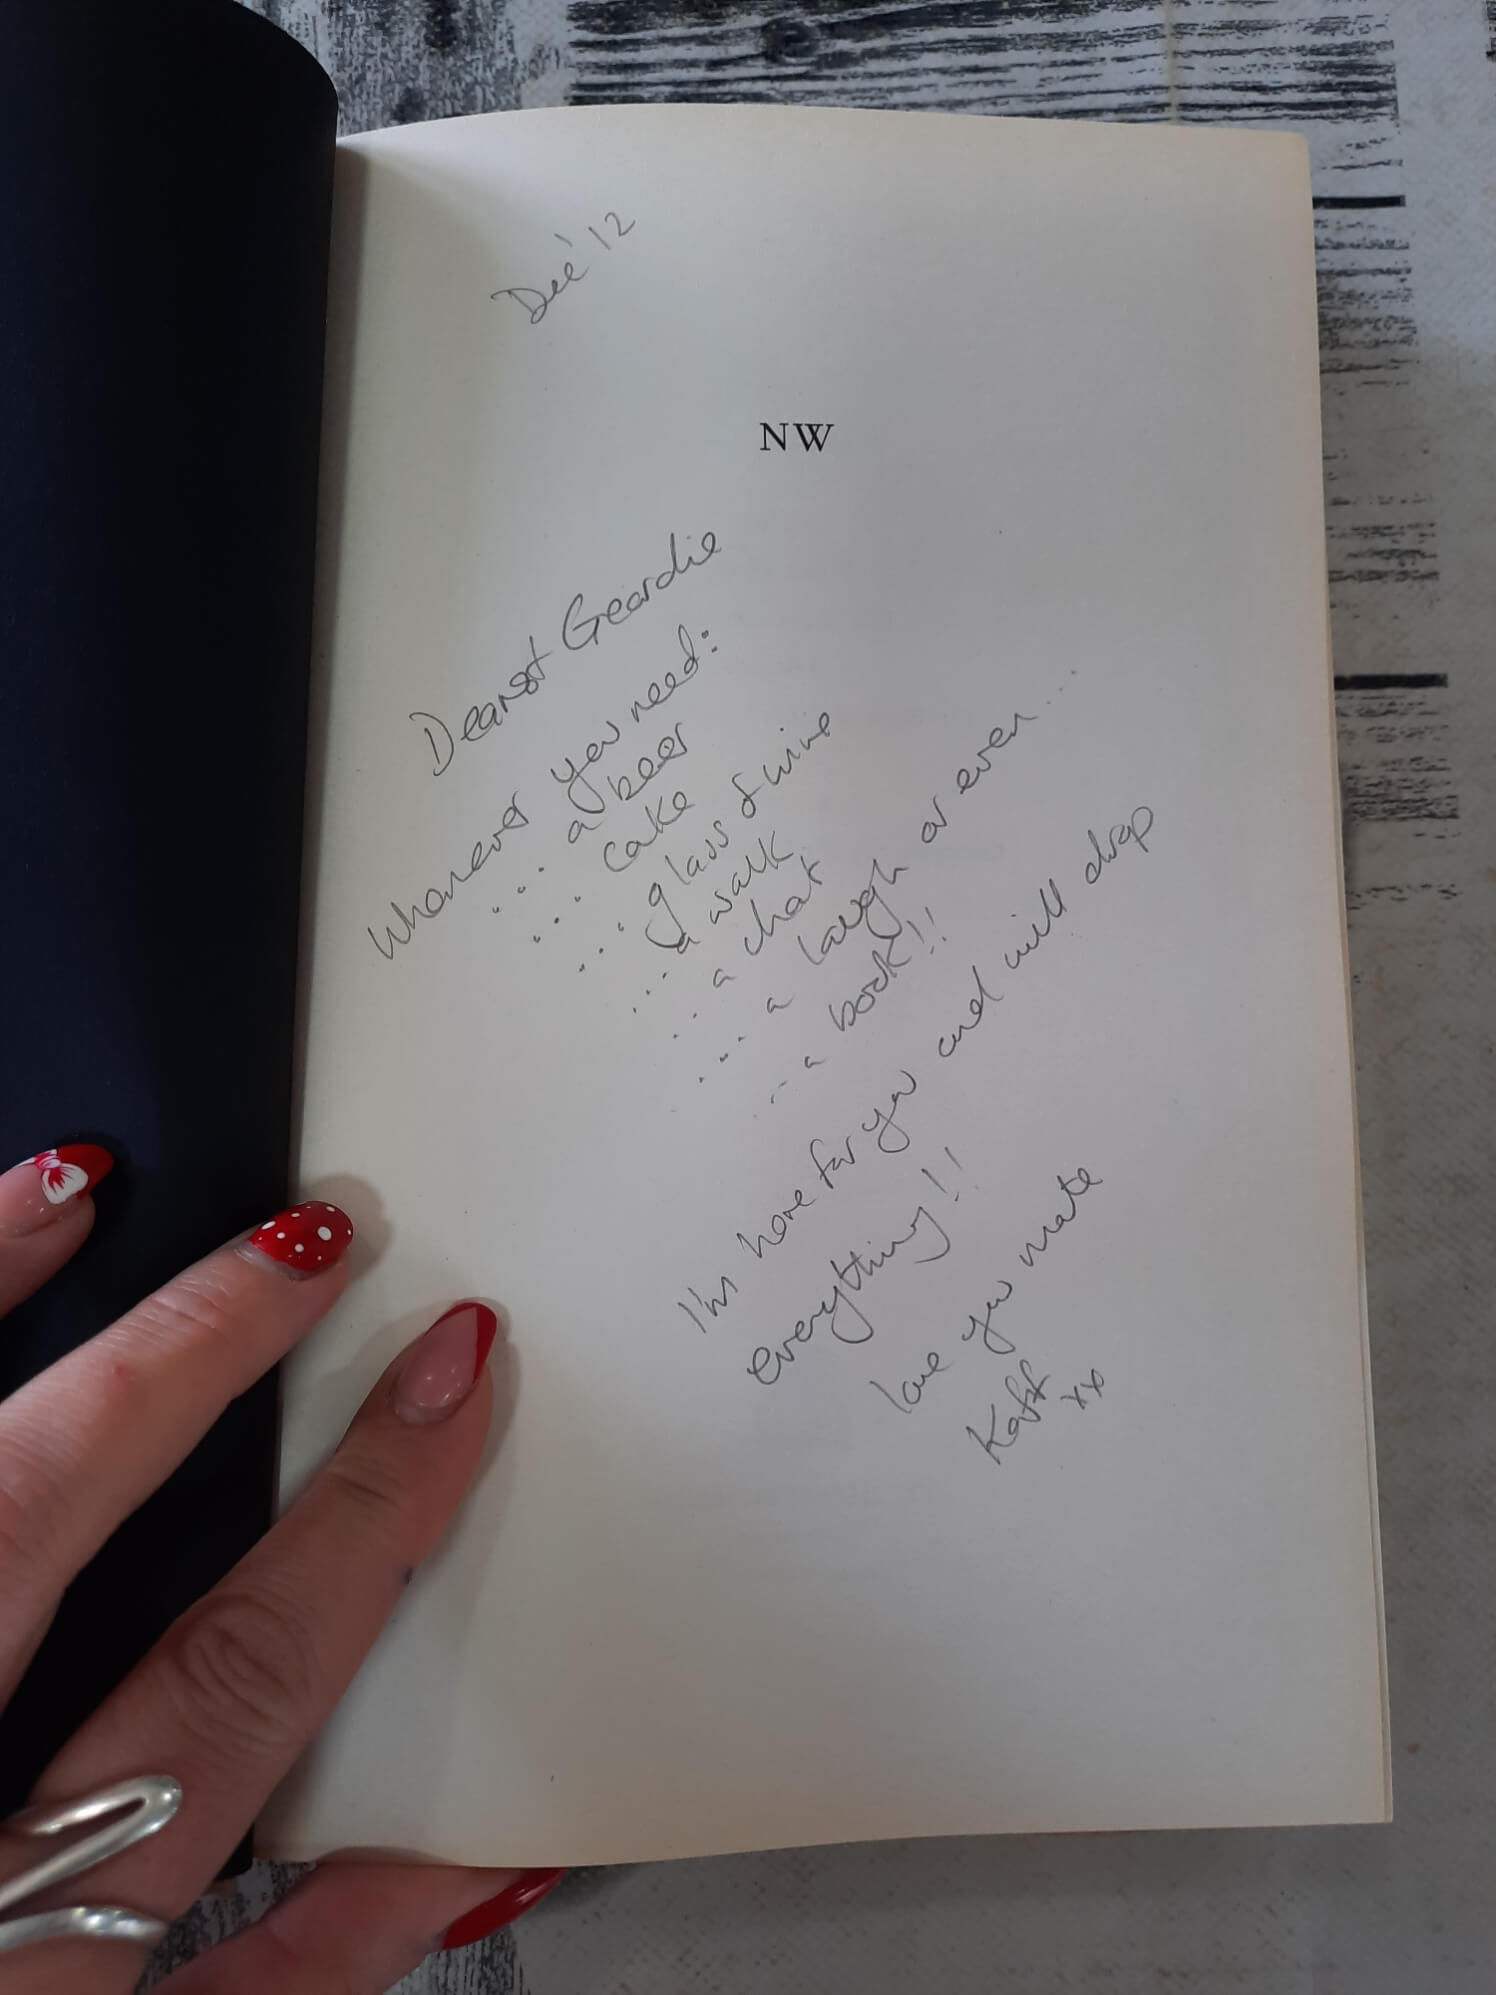 Dec '12
NW
Dearest Geordie
Whenever you need:
... a beer
... cake
... glass of wine
... a walk
... a chat
... a laugh or even...
... a book!!
I'm here for you and will drop
everything!!
love you mate
Kaff
xx